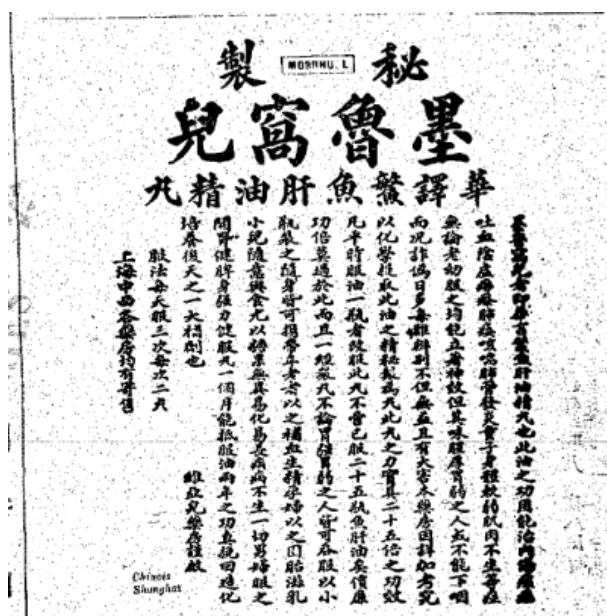 秘製
MORRHU. L
墨魯窩兒
華譯鰵魚肝油精丸
墨魯窩兒者即 有鰵魚肝油精丸也此油之功固能治內傷
吐血陰虛癆瘵肺痰咳喘肺管發炎 子身體軟弱肌肉不生等症
無論老幼服之均能立著神效但其味腥厚胃弱之人或不能下咽
而況詐偽日多每難辨別不但無益且有大害本藥房因詳加考究
以化學提取此油之精秘製為丸此丸之力實具二十五倍之功效
凡平時服油一瓶者改服此丸不啻已服二十五瓶魚肝油矣價廉
功倍莫過於此而且一經裹丸不論胃強胃弱之人皆可吞服以小
瓶裝之隨身皆可攜帶年老者以之補血生精孕婦以之固胎滋乳
小兒隨意與食尤以糖果無異易化易長疾病不生一切男婦服之
開胃健脾身強力健服丸一個月能抵服油兩年之功直挽回造化
培養後天之一大補劑也 兒藥房謹啟
服法每天服三次每次二丸
上海中西各藥房均有寄售
Chinees
Shanghai